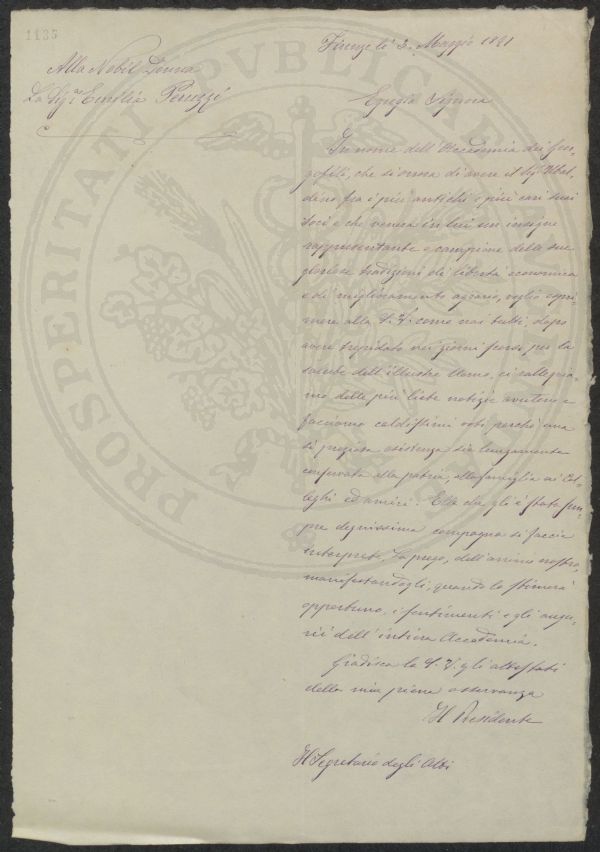 1135
Firenze li 3. Maggio 1891
Alla Nobil Donna
La Sig.ra Emilia Peruzzi
Egregia Signora
In nome dell'Accademia dei Geor-
gofili, che si onora di avere il Sig. Ubal-
dino fra i più antichi e più cari suoi
Soci e che venera in lui un insigne
rappresentante e campione delle sue
gloriose tradizioni di libertà economica
e di miglioramento agrario, voglio espri-
mere alla S. V. come noi tutti, dopo
avere trepidato nei giorni scorsi per la
salute dell'illustre Uomo, ci rallegria-
mo delle più liete notizie avutene e
facciamo caldissimi voti perchè una
sì preziosa esistenza sia lungamente
conservata alla patria, alla famiglia ai Col-
leghi ed amici. Ella che gli è stata sem-
pre degnissima compagna si faccia
interprete, La prego, dell'animo nostro,
manifestandogli, quando lo stimerà
opportuno, i sentimenti e gli augu-
rii dell'intiera Accademia.
Gradisca la S. V. gli attestati
della mia piena osservanza
Il Presidente
Il Segretario degli Atti
PROSPERITATI PVBLICAE